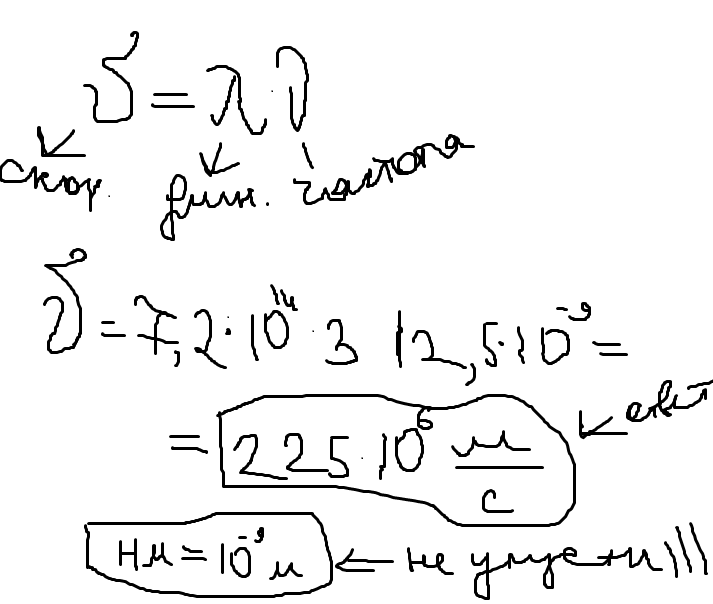 υ = λ·ν
скор. длин. частота
υ = 7,2·10¹⁴·312,5·10⁻⁹ =
= 225·10⁶ м/с ответ
нм = 10⁻⁹ м ← не упусти!!!